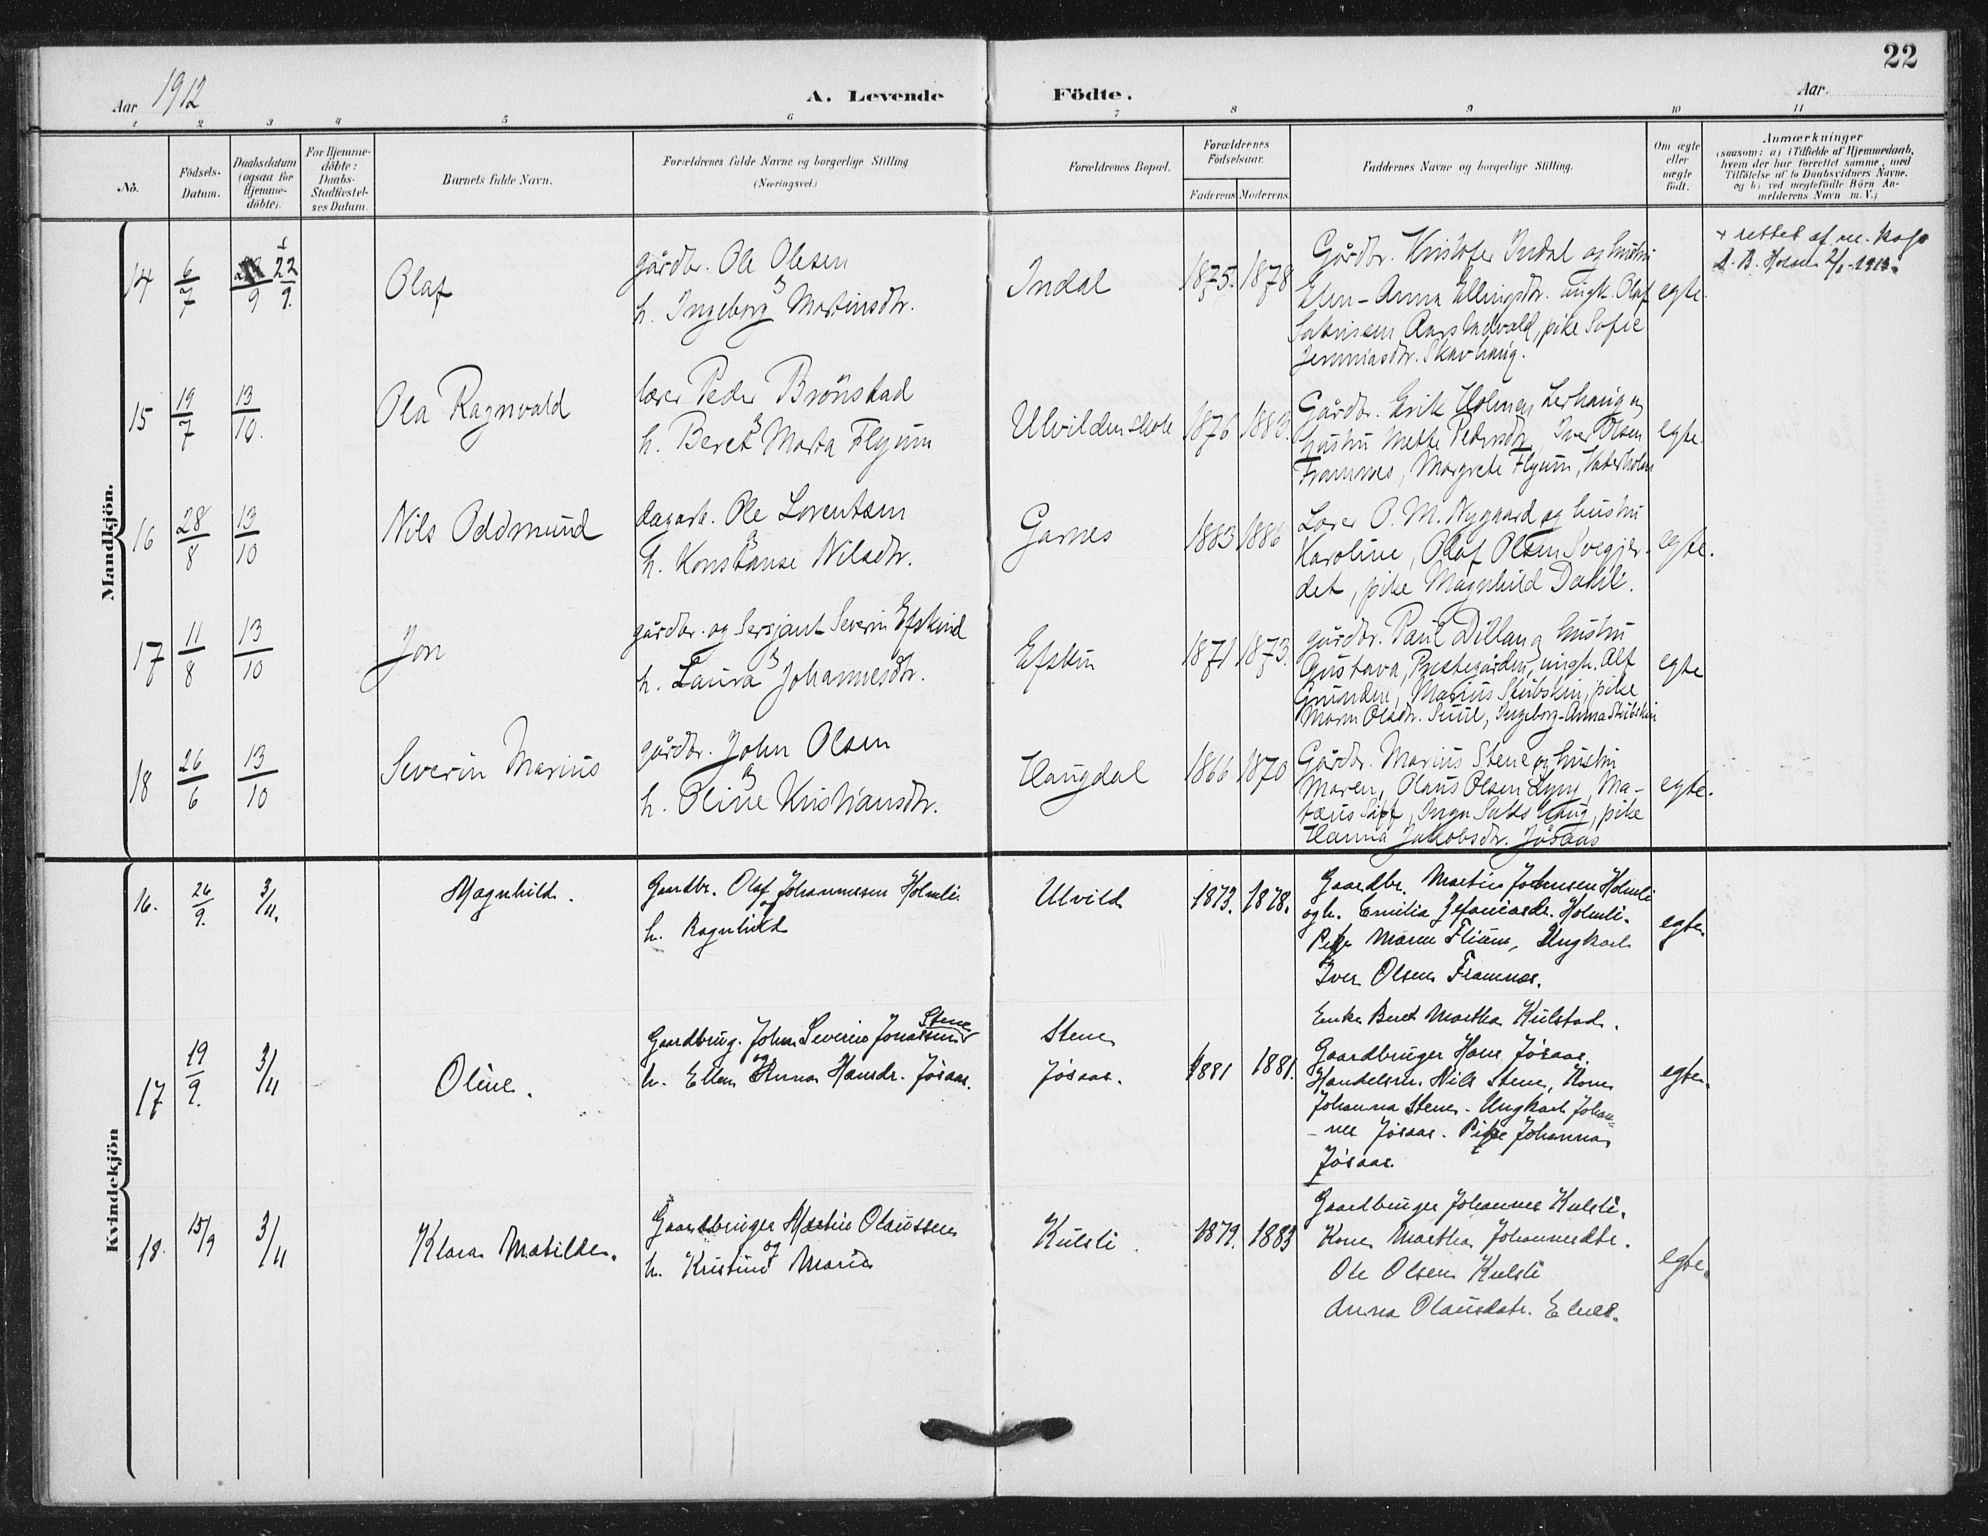 22
Aar 1912
A. Levende Födte.
Aar.
1 2 3 4 5 6 7 8 9 10 11
No.
Födsels-
Datum.
Daabsdatum
(ogsaa for
Hjemme-
döbte).
For Hjemme-
döbte:
Daabs-
Stadfæstel-
ses Datum.
Barnets fulde Navn.
Forældrenes fulde Navne og borgerlige Stilling
(Næringsvei.)
Forældrenes Bopæl.
Forældrenes
Födselsaar.
Faderens Moderens
Faddernes Navne og borgerlige Stilling.
Om ægte
eller
uægte
födt.
Anmærkninger
(saasom: a) i Tilfælde af Hjemmedaab,
hvem der har forrettet samme, med
Tilföielse af to Daabsvidners Navne.
og b) ved uægtefödte Börn An-
melderens Navn m. V.)
Mandkjön.
14 6/7 9 + 22/9. Olaf
gårdbr. Ole Olesen
og
h. Ingeborg Martinsdtr.
Indal 1875. 1878
Gårdbr. Kristofer Indal og hustru
Elen-Anna Ellingsdtr. ungk. Olaf
pike Sofie
Jermiasdtr. Skavhaug.
egte.
+ rettet af
2/1-1913.
15 19/7 13/10. Ola Ragnvald
lærer Peder Brönstad
og
h. Beret Marta Flyum
Ulvilden skole 1876 1883.
Gårdbr. Erik Holmen Lerhaug og
hustru Mette Pedersdtr, Iver Olsen
Framnes, Margrete Flyum,
egte.
16 28/8 13/10 Nils Oddmund
dagarb. Ole Lorentsen
og
h. Konstanse Nilsdtr.
Garnes 1883 1886
Lærer O. M. Nygaard og hustru
Karoline, Olaf Olsen Svegjer-
det, pike Magnhild Dahli.
egte.
17 11/8 13/10 Jon
gårdbr. og Sersjant Severin Efskind
og
h. Laura Johannesdtr.
Efskin 1871 1873.
gårdbr. Paul Dillan og hustru
Gustava, Prestegården, ungk. Alf
Grunden, Marius Stubskin, pike
Maren Olsdtr. Suul, Ingeborg-Anna Stubskin
egte
18 26/6 13/10 Severin Marius
gårdbr. John Olsen
og
h. Oline Kristiansdtr.
Haugdal 1866 1870
Gårdbr. Marius Stene og hustru
Maren, Olaus Olsen Lyng, Ma-
pike
Hanna Jakobsdtr. Jösaas
egte.
Kvindekjön
16. 26/9. 3/11. Magnhild.
Gaardbr. Olaf Johannessen Holmli
og
h. Ragnhild
Ulvild 1873. 1878.
Gaardbr. Martin Johnsen Holmli
og h. Emilia Holmli.
Pike Maren Flium, Ungkarl
Iver Olsen Framnes.
egte.
17 19/9. 3/11 Oline.
Stene
Gaardbrug. Johan Severin Jonassen
og
h. Ellen Anna Hansdr. Jösaas.
Stene
Jösaas. 1881 1881.
Enke Beret Martha Kulstad.
Gaardbruger Hans Jösaas.
Handelsm. Nils Stene, Kone
Johanna Stene. Ungkarl Johan-
-nes Jösaas. Pike Johanna
Jösaas.
egte.
18. 15/9 3/11 Klara Matilde.
Gaardbruger Martin Olaussen
og
h. Kristine Marie
Kulsli. 1879. 1883
Gaardbruger Johannes Kulsli.
Kone Martha Johannesdtr.
Ole Olsen Kulsli
Anna Olausdatr. Elnes.
egte.